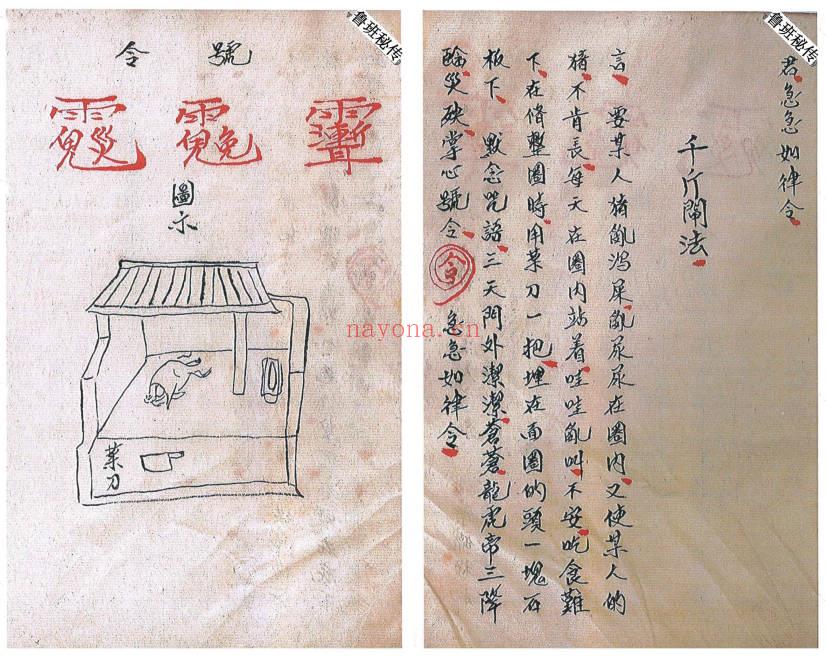 鲁班秘传
君急急如律令
千斤閘法
言要某人猪亂瀉屎亂尿尿在圈内又使某人的
猪不肯長每天在圈内站着哇哇亂叫不安吃食難
下在修整圈時用菜刀一把埋在面圈的頭一塊石
板下默念咒語三天門外潔潔蒼蒼龍虎帝三降
臨災殃掌心號令 令 急急如律令
鲁班秘传
號令
圖示
菜刀
nayona.cn